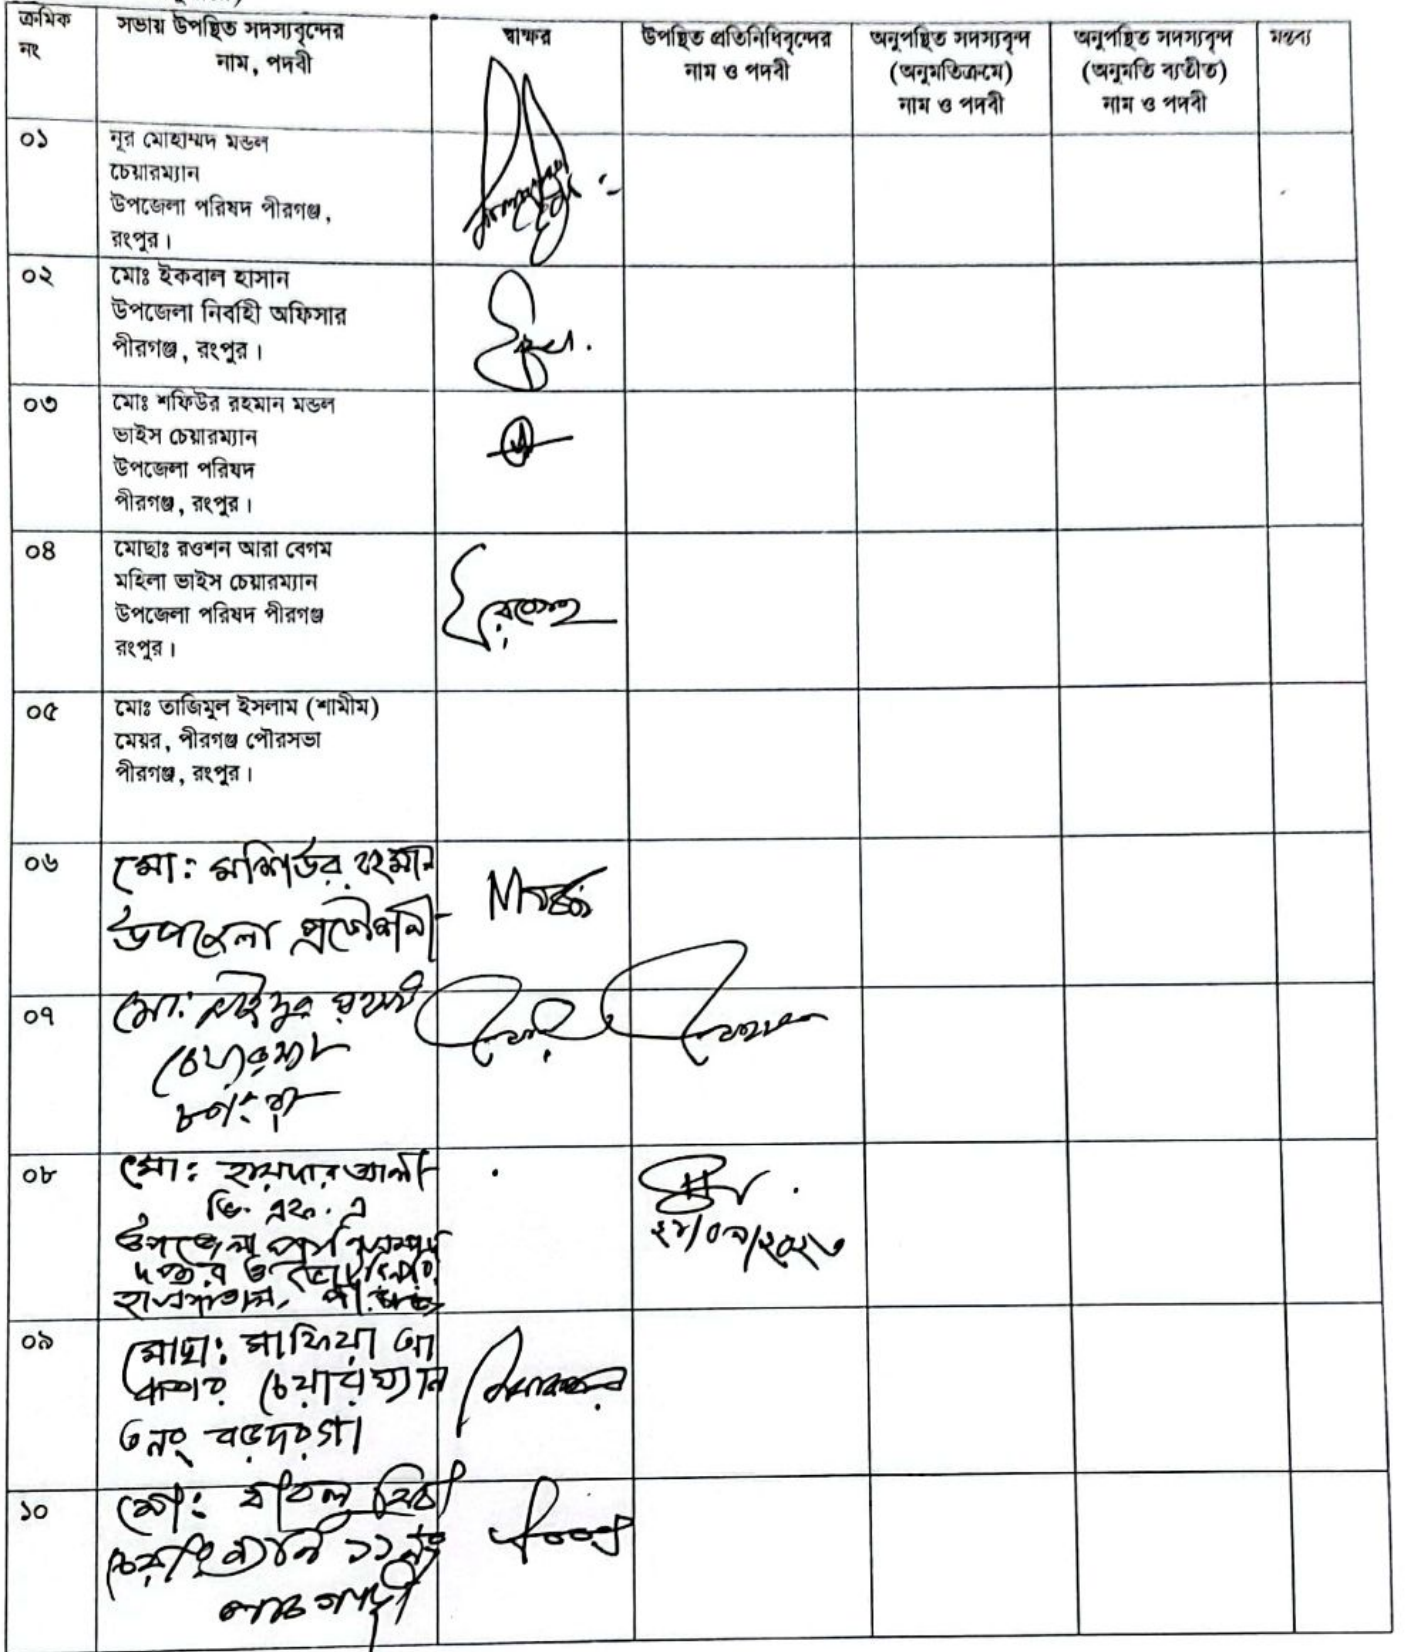 ক্রমিক নং
সভায় উপস্থিত সদস্যবৃন্দের নাম, পদবী
স্বাক্ষর
উপস্থিত প্রতিনিধিবৃন্দের নাম ও পদবী
অনুপস্থিত সদস্যবৃন্দ (অনুমতিক্রমে) নাম ও পদবী
অনুপস্থিত সদস্যবৃন্দ (অনুমতি ব্যতীত) নাম ও পদবী
মন্তব্য
০১
নূর মোহাম্মদ মন্ডল
চেয়ারম্যান
উপজেলা পরিষদ পীরগঞ্জ,
রংপুর।
০২
মোঃ ইকবাল হাসান
উপজেলা নির্বাহী অফিসার
পীরগঞ্জ, রংপুর।
০৩
মোঃ শফিউর রহমান মন্ডল
ভাইস চেয়ারম্যান
উপজেলা পরিষদ
পীরগঞ্জ, রংপুর।
০৪
মোছাঃ রওশন আরা বেগম
মহিলা ভাইস চেয়ারম্যান
উপজেলা পরিষদ পীরগঞ্জ
রংপুর।
০৫
মোঃ তাজিমুল ইসলাম (শামীম)
মেয়র, পীরগঞ্জ পৌরসভা
পীরগঞ্জ, রংপুর।
০৬
মো: মশিউর রহমান
উপজেলা প্রকৌশলী
০৭
মো:
চেয়ারম্যান
০৮
মো: হায়দার আলী
ভি. এফ. এ
উপজেলা প্রাণিসম্পদ
দপ্তর ও ভেটেরিনারি
হাসপাতাল,
০৯
মোছা: মাফিয়া আ
চেয়ারম্যান
৩নং বড়দরগা
১০
মো:
চেয়ারম্যান ১১নং